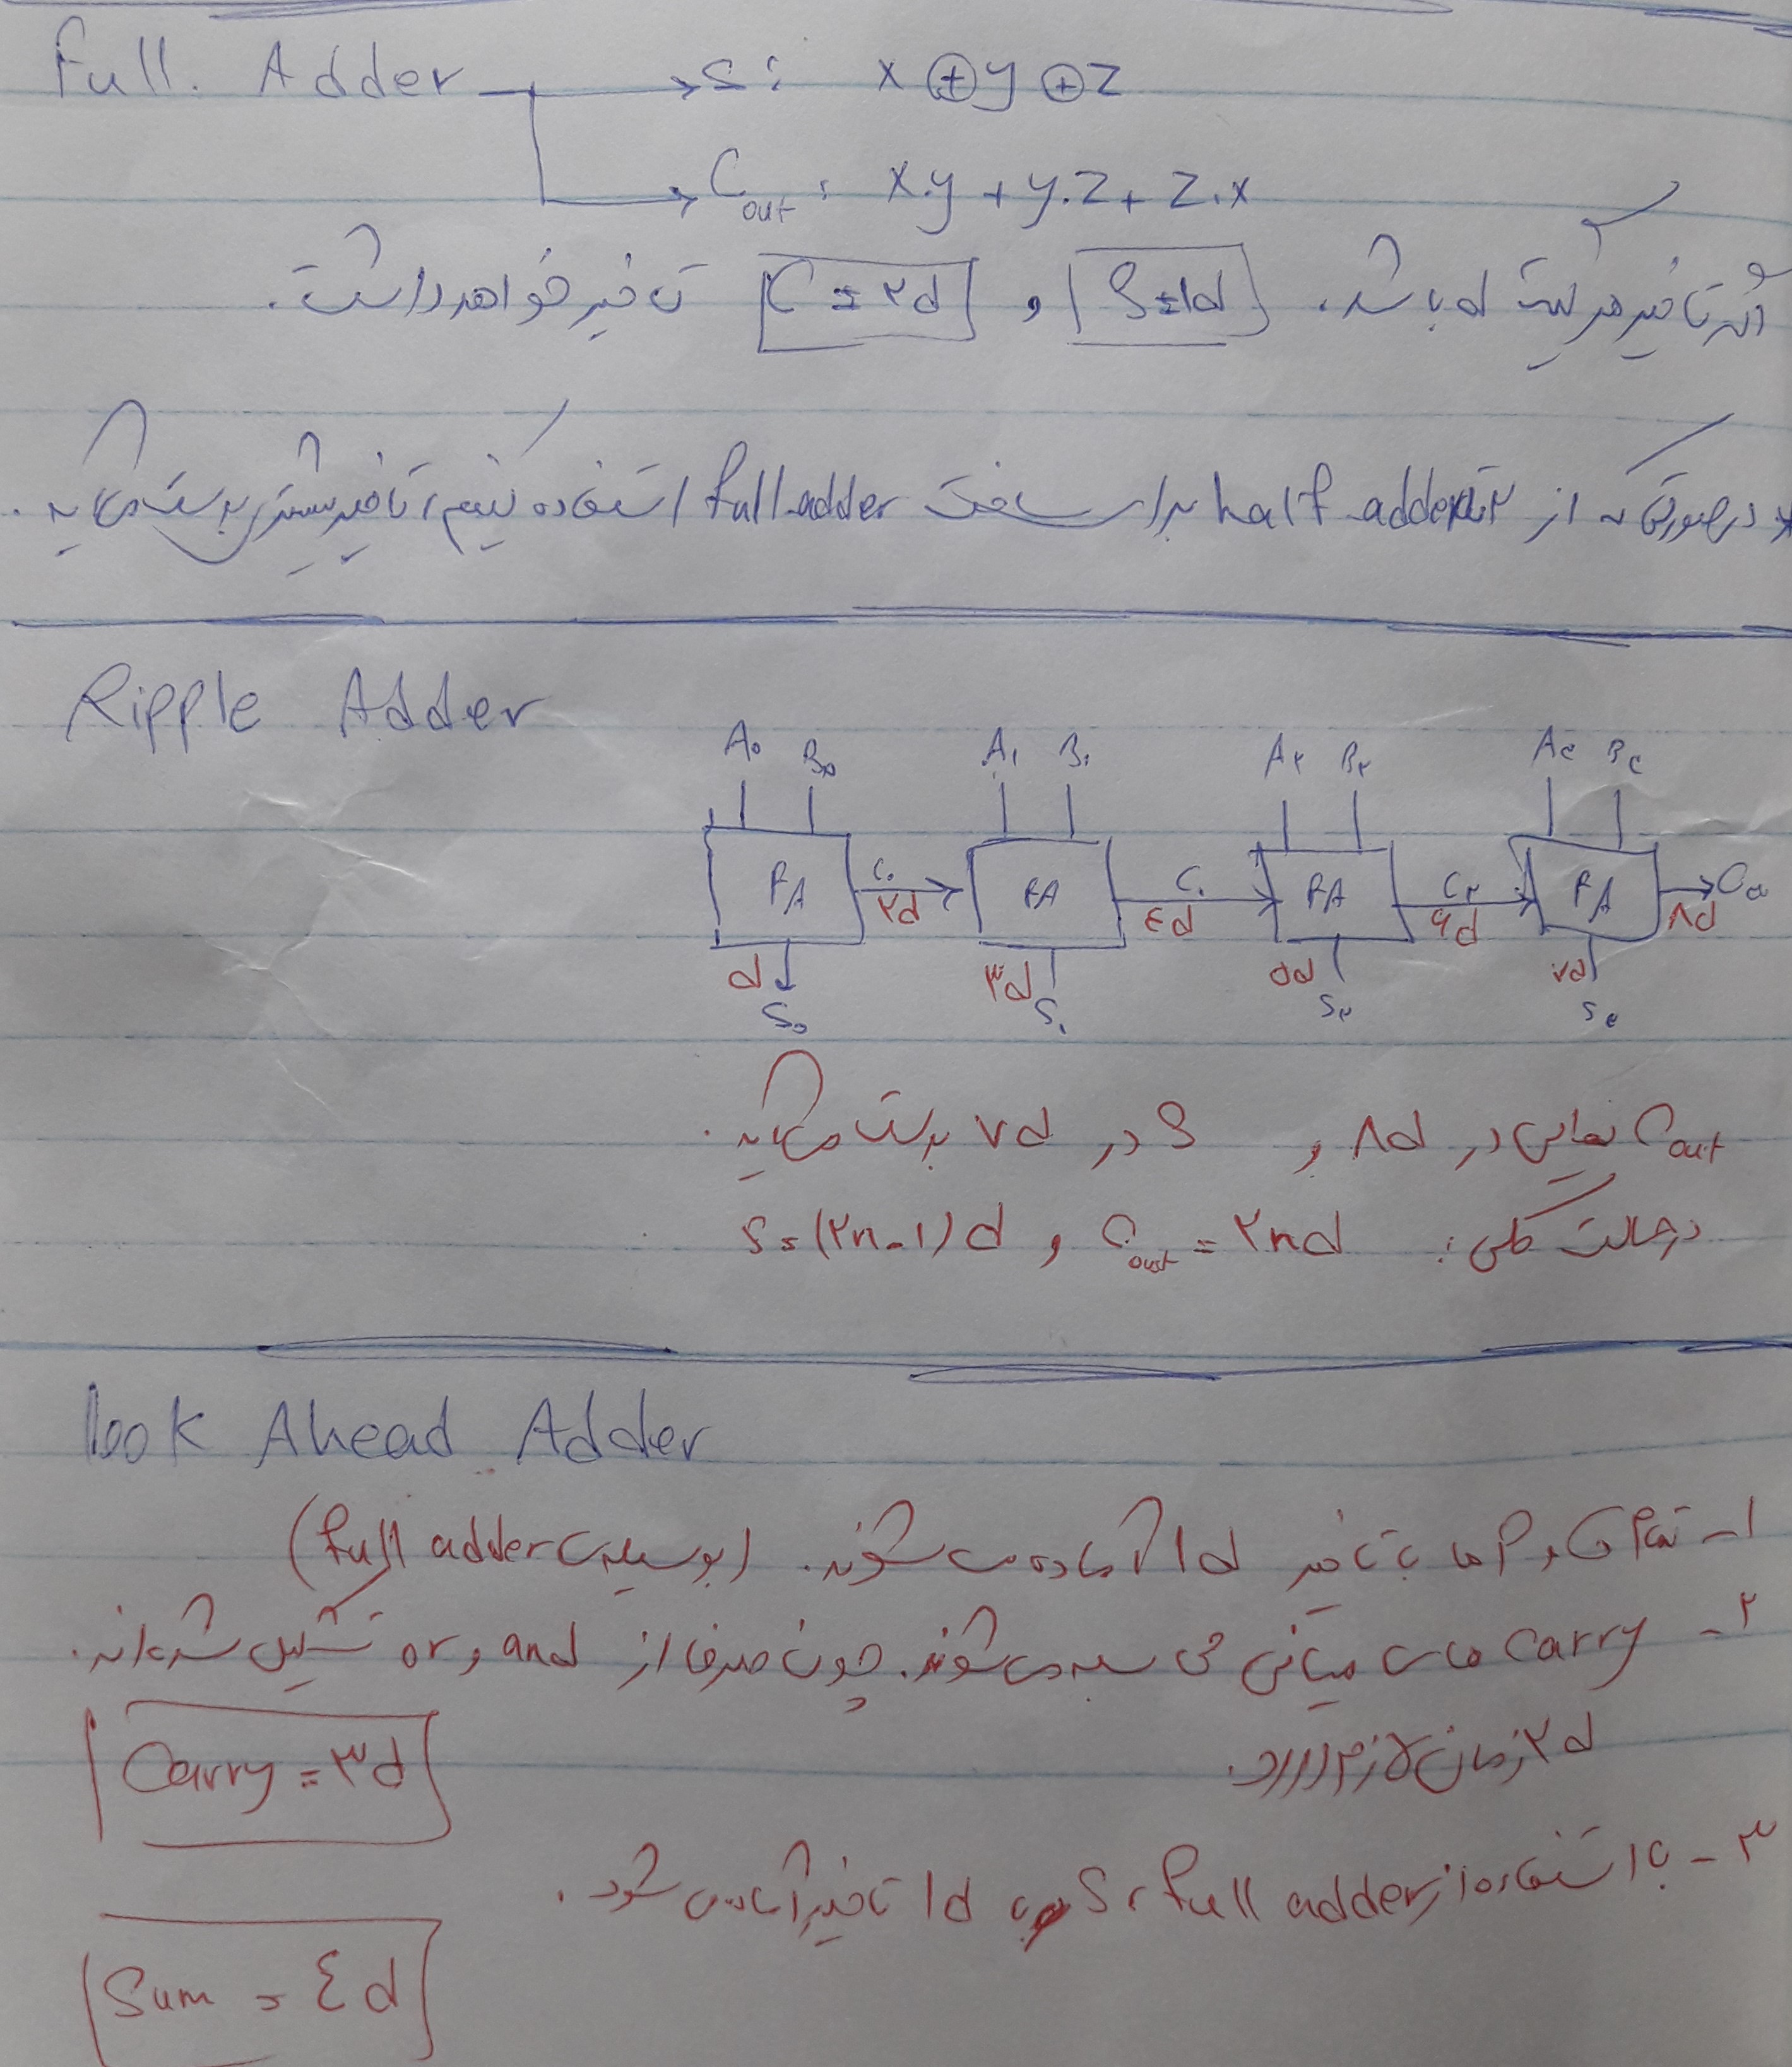 Full. Adder → S: x ⊕ y ⊕ z
→ Cout : x.y + y.z + z.x
اگر تاخیر هر گیت d باشد، S=1d و C=۲d تاخیر خواهد داشت.
* در صورتی که از ۲تا half adder برای ساخت full adder استفاده کنیم، تاخیر بیشتری بدست می‌آید.
Ripple Adder
A₀ B₀ A₁ B₁ A۲ B۲ A۳ B۳
FA C₀ FA C₁ FA C۲ FA C۳
۲d ٤d ۶d ۸d
d ۳d ۵d ۷d
S₀ S₁ S۲ S۳
Cout نهایی در ۸d و S در ۷d بدست می‌آید.
در حالت کلی: Cout = ۲nd و S=(۲n-۱)d
look Ahead Adder
۱- تمام G و P ها با تاخیر 1d آماده می‌شوند. (بوسیله‌ی full adder)
۲- carry های میانی محاسبه می‌شوند. چون صرفا از and و or تشکیل شده‌اند.
۲d زمان لازم دارد.
Carry = ۳d
۳- با استفاده از full adder، S با 1d تاخیر آماده می‌شود.
Sum = ٤d